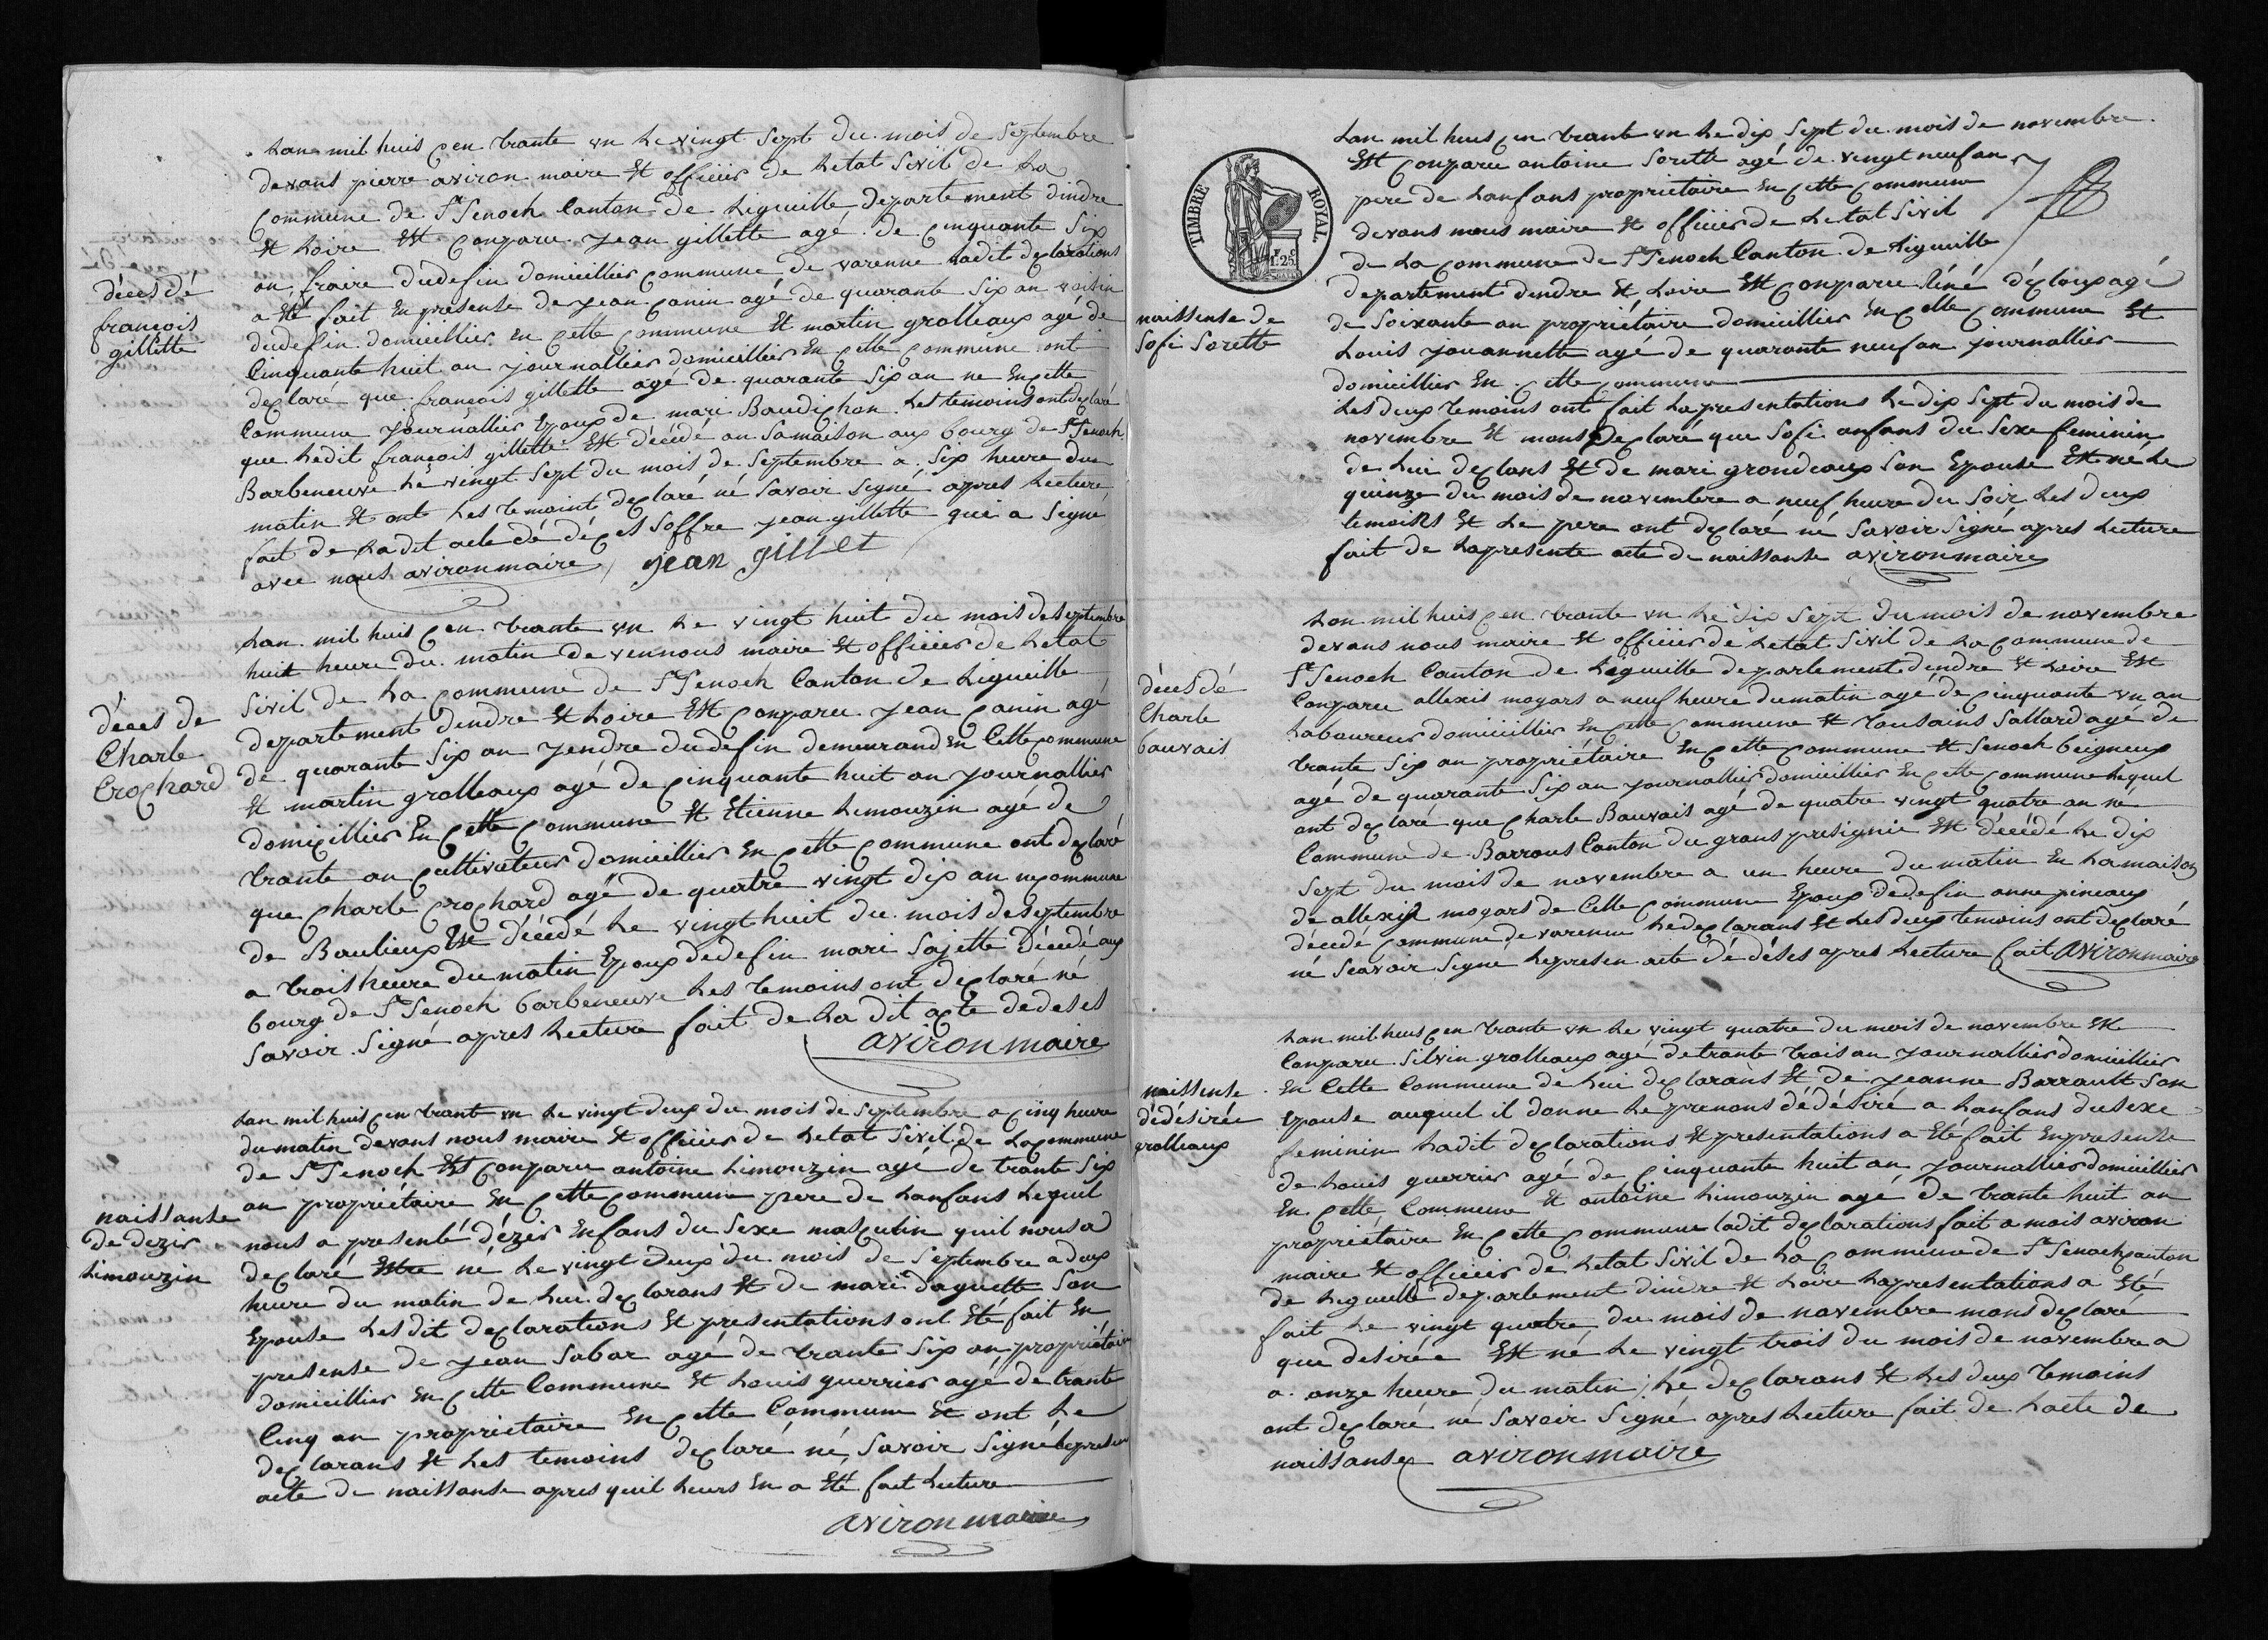 décès dé
françois
gillette
Lan mil huis cen trante un Le vingt Sept du mois de Septembre
devans pierre aviron maire Et officiier de Letat Sivil de La
Commune de St Senoch Canton de Ligueille departement dindre
Et Loire Est Conparu jean gillette agé de cinquante Six
an fraire dudefin domicillier commune de varenne Ladit declarations
a Eté fait En presense de jean canin agé de quarante Six an voisin
dudefin domicillier En cette commune Et martin grolleaux agé de
Cinquante huit an journallier domicillier En cette commune ont
declaré que françois gillette agé de quarante Six an ne En cette
Commune journallier Epoux de mari Baudichon Les temoins ont declaré
que Ledit françois gillette Est décédé an Samaison aux bourg de St Senoch
Barbeneuve Le vingt Sept du mois de Septembre a Six heure du
matin Et ont Les temoint declaré né Savoir Signé apres Lecture
fait de Ladit acte dé déces Soffre jean gillette qui a Signé
avec nous aviron maire jean gillet
déces de
Charle
Crochard
Lan mil huis cen trante un Le vingt huit du mois deseptembre
huit heure du matin devennous maire Et officiier de Letat
Sivil de La commune de St Senoch Canton de Ligueille
departement dindre Et Loire Est Conparu jean Canin agé
de quarante Six an jendre dudefin demeurand En Cette commune
Et martin grolleaux agé de cinquante huit an journallier
domicillier En cette commune Et Etienne Limouzin agé de
trante an cultivateur domicillier En cette commune ont declaré
que Charle Crochard agé de quatre vingt dix an ne commune
de Baulieux Est décédé Le vingt huit du mois deseptembre
a trois heure du matin Epoux dedefin mari Sajette décedé aux
bourg de St Senoch barbeneuve Les temoins ont declaré né
Savoir Signé apres Lecture fait de La dit acte dedeses
aviron maire
naissanse
de dezir
Limouzin
Lan mil huis cen trante un Le vingt deux du mois de Septembre a Cinq heure
du matin devans nous maire Et officiier de Letat Sivil de La commune
de St Senoch Est Conparu antoine Limouzin agé de trante Six
an propriétaire En cette commune pere de Lanfans Lequel
nous a presenté dézir Enfans du Sexe masculin quil nous a
declaré Estre né Le vingt Deux du mois de Septembre a deux
heure du matin de Lui declarans Et de mari daguette Son
Epouse Lesdit declarations Et presentations ont Eté fait En
presense de jean Sabar agé de trante Six an propriétaire
domicillier En cette Commune Et Louis guerrier agé de trante
Cinq an propriétaire En cette Commune Et ont Le
declarans Et Les temoins declaré né Savoir Signé Lepresen
acte de naissanse apres quil Leurs En a Eté fait Lecture
aviron maire
TIMBRE ROYAL
1f. 25c
naissense de
Sofi Sorette
Lan mil huis cen trante un Le dix Sept du mois de novembre
Est Conparu antoine Sorette agé de vingt neuf an
pere de Lanfans propriétaire En cette commune
devans nous maire Et officiier de Letat Sivil
de La commune de St Senoch Canton de Ligueille
departement dindre Et Loire Est conparu Réné décloux agé
de Soixante an propriétaire domicillier En cette commune Et
Louis jouannette agé de quarante neuf an journallier
domicillier En cette commune
Les deux temoins ont fait La presentations Le dix Sept du mois de
novembre Et mons Declaré que Sofi anfans du Sexe feminin
de Lui declans Et de mari grondeaux Son Epouse Est né Le
quinze du mois de novembre a neuf heure du Soir Les deux
temoins Et Le pere ont declaré né Savoir Signé apres Lecture
fait de Lapresente acte de naissanse aviron maire
déces dé
Charle
bauvais
Lan mil huis cen trante un Le dix Sept du mois de novembre
devans nous maire Et officiier de Letat Sivil de La commune de
St Senoch Canton de Legueille departement dindre Et Loire Est
Conparu allexis mogars a neuf heure dumatin agé de cinquante un an
Laboureur domicillier En cette commune Et tousains Sallard agé de
trante Six an propriétaire En cette commune Et Senoch beigneux
agé de quarante Six an journallier domicillier En cette commune Lequel
ont declaré que Charle Bauvais agé de quatre vingt quatre an né
Commune de Barrous Canton du grans presignie Est décédé Le dix
Sept du mois de novembre a un heure du matin En Lamaison
de allexis mogars de Cette commune Epoux dedefin anne pineaux
décédé commune de varenne Le declarans Et Les deux temoins ont declaré
né Scavoir Signé Lepresen acte dé déses apres Lecture fait aviron maire
naissense
dédésirée
grolleaux
Lan mil huis cen trante un Le vingt quatre du mois de novembre Est
Conparu Silvin grolleaux agé de trante trois an journallier domicillier
En Cette Commune de Lui declarans Et de jeanne Barrault Son
Epouse auquel il donne Le prenons dédésiré a Lanfans du sexe
feminin Ladit declarations Et presentations a Eté fait Enpresense
de Louis guerrier agé de cinquante huit an journallier domicillier
En cette Commune Et antoine Limouzin agé de trante huit an
propriétaire En cette commune Ladit declarations fait a mois aviron
maire Et officiier de Letat Sivil de La commune de St Senoch canton
de Legueille departement dindre Et Loire Lapresentations a Eté
fait Le vingt quatre du mois de novembre mons declare
que desirée Est né Le vingt trois du mois de novembre a
a onze heure du matin Le declarans Et Les deux temoins
ont declaré né Savoir Signé apres Lecture fait de Lacte de
naissanse aviron maire